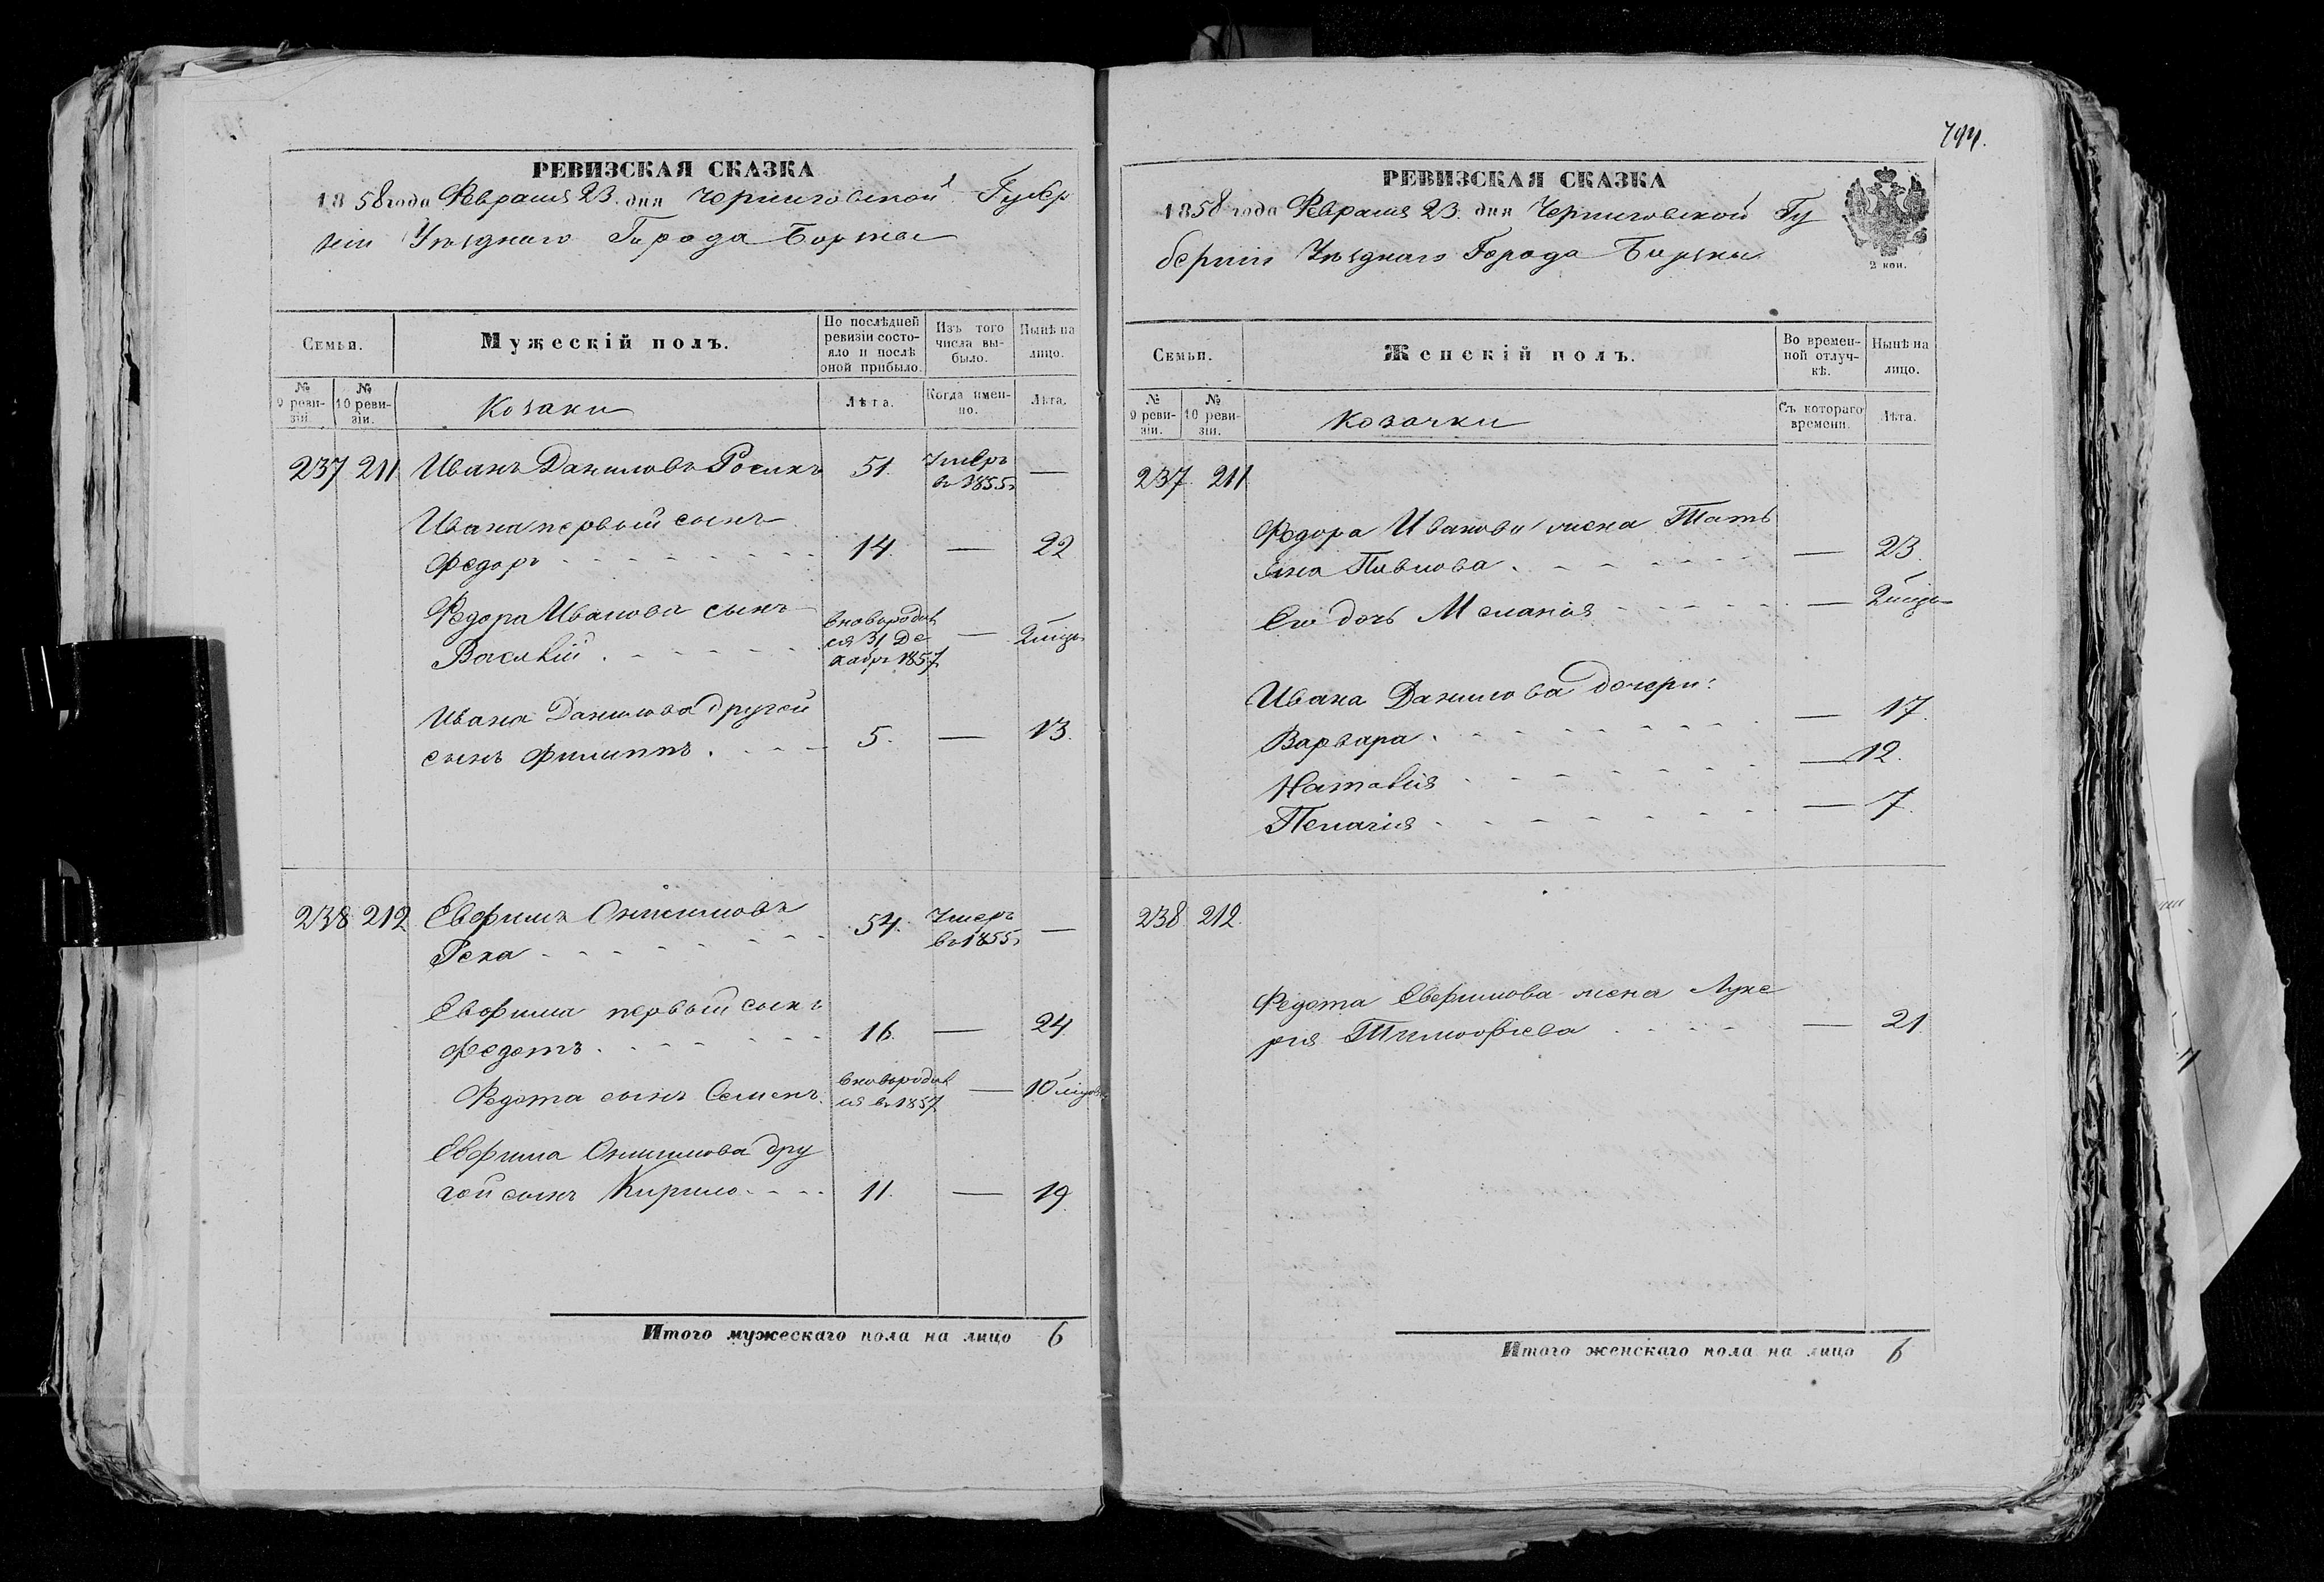 794.
РЕВИЗСКАЯ СКАЗКА
1858 года Февраля 23. дня Черниговской Губер
ніи Уѣзднаго Города Борзны
Семьи.
Мужескій полъ.
По послѣдней ревизіи состояло и послѣ оной прибыло.
Изъ того числа выбыло.
Нынѣ на лицо.
№ 9 ревизіи.
№ 10 ревизіи.
Козаки
Лѣта.
Когда именно.
Лѣта.
237 211 Иванъ Даниловъ 51. Умеръ въ 1855г —
Ивана первый сынъ
Федоръ 14. — 22
Федора Иванова сынъ
Василій вновьродился 31 Декабря 1857 —
Ивана Данилова другой
сынъ Филиппъ 5. — 13.
238 212 Евфимъ Онисимовъ
54. Умеръ въ 1855г —
Евфима первый сынъ
Федотъ 16. — 24.
Федота сынъ Семенъ. вновьродился въ 1857 — 10
Евфима Онисимова дру
гой сынъ Кирило 11. — 19.
Итого мужескаго пола на лицо 6
РЕВИЗСКАЯ СКАЗКА
1858 года Февраля 23. дня Черниговской Гу
берніи Уѣзднаго Города Борзны
2 коп.
Семьи.
Женскій полъ.
Во временной отлучкѣ.
Нынѣ на лицо.
№ 9 ревизіи.
№ 10 ревизіи.
Козачки
Съ котораго времени.
Лѣта.
237. 211
Федора Иванова жена Тать
яна Павлова — 23.
Его дочь Меланія —
Ивана Данилова дочери:
Варвара — 17.
Наталія — 12.
Пелагія — 7.
238 212.
Федота Евфимова жена Луке
рія Тимофѣева — 21.
Итого женскаго пола на лицо 6